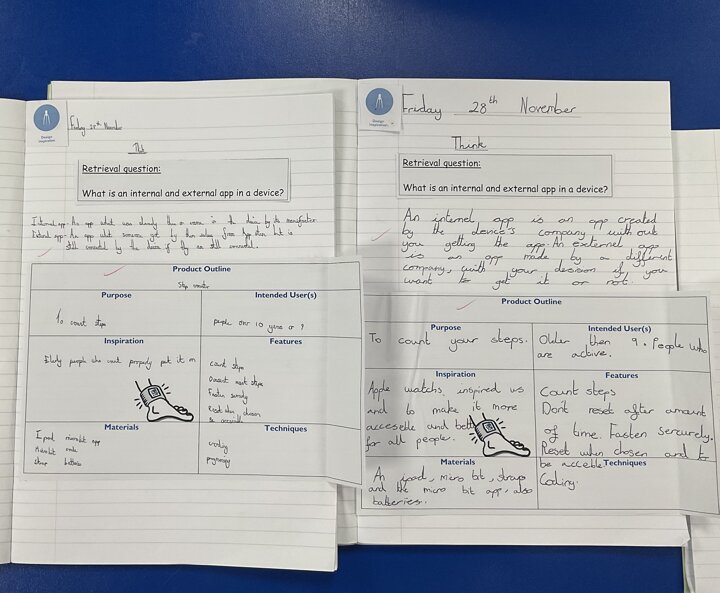 Design Inspiration
Friday 28th November
Retrieval question:
What is an internal and external app in a device?
Internal app - An app what was already
External app - An app what someone got by
still connected by the device if
Product Outline
Step counter
Purpose
Intended User(s)
To count steps
people over 10 years or 9
Inspiration
Features
Elderly people who cant properly put it on
count steps
Doesnt reset steps
Fasten
Reset when chosen
&
Materials
Techniques
Ipad microbit app
Microbit
strap batteries
Design Inspiration
Friday 28th November
Think
Retrieval question:
What is an internal and external app in a device?
An internal app is an app created
by the device's company with out
you getting the app. An external app
is an app made by a different
company, with your decision if you
want to get it or not.
Product Outline
Purpose
Intended User(s)
To count your steps.
Older then 9. People who
are active.
Inspiration
Features
Apple watchs inspired us
and to make it more
and
for all people.
Count steps
Dont reset after amount
of time. Fasten
Reset when chosen and to
be
Materials
Techniques
An ipad, micro bit, straps
and the micro bit app, also
batteries.
Coding.